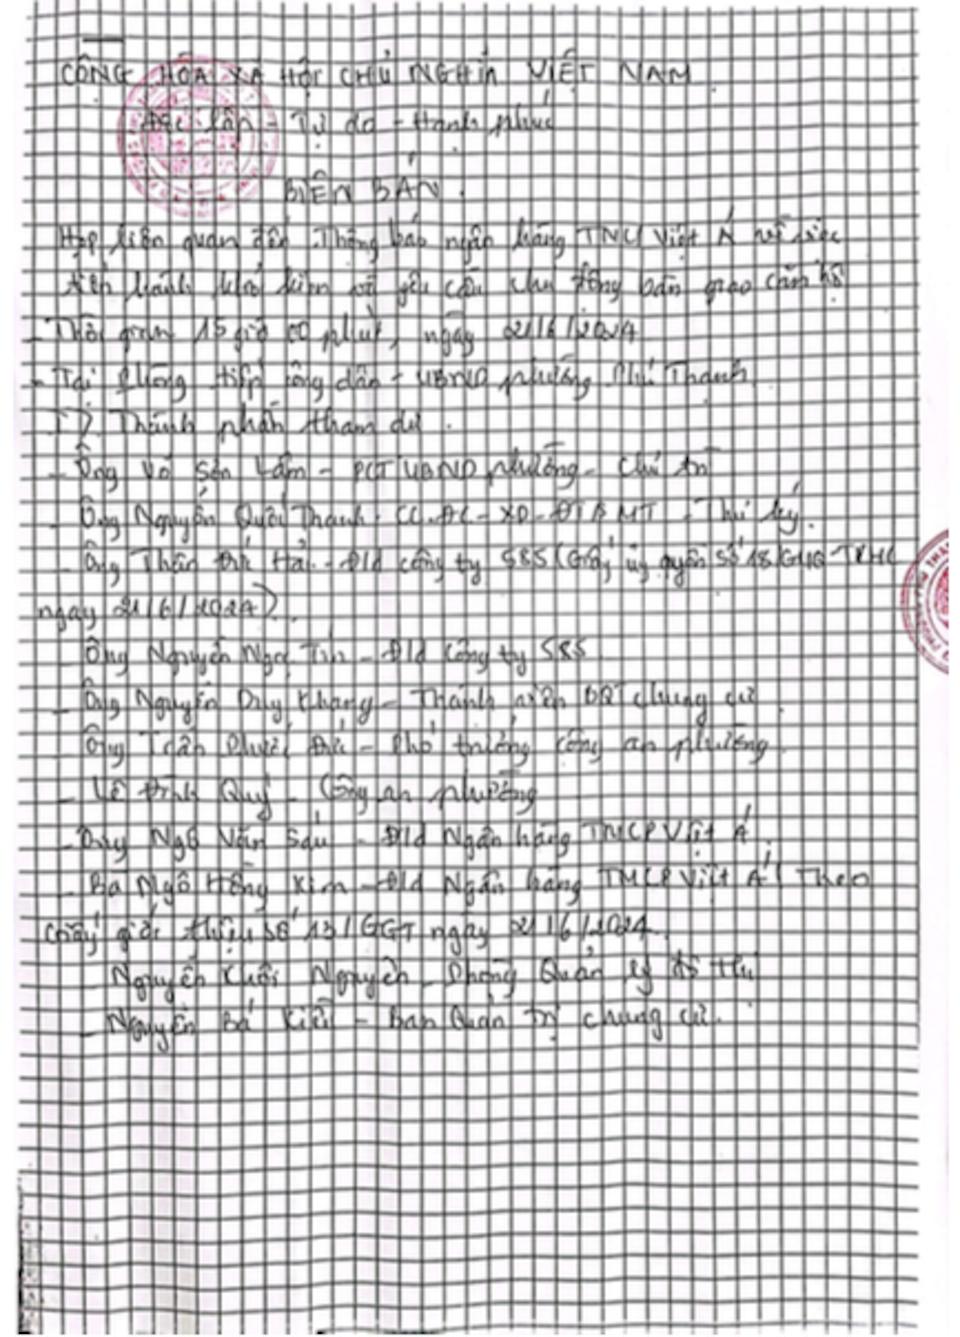 CÔNG HÒA XÃ HỘI CHỦ NGHĨA VIỆT NAM
Độc lập - Tự do - Hạnh phúc
BIÊN BẢN.
Họp liên quan đến Thông báo ngân hàng TMCP Việt Á về việc
yêu cầu chủ động bàn giao căn hộ
- Thời gian 15 giờ 00 phút, ngày 21/6/2024
- Tại phòng tiếp công dân - UBND phường Phú Thạnh
I/. Thành phần tham dự.
- Ông Võ Sơn Lâm - PCT UBND phường - Chủ trì
- Ông Nguyễn Quới Thanh - CC.ĐC-XD-ĐT&MT - Thư ký.
- Ông Thân Đức Hải - Đld công ty 585 (Giấy ủy quyền số 18/GUQ-TKHC
ngày 21/6/2024).
- Ông Nguyễn Ngọc Tín - Đld công ty 585
- Ông Nguyễn Duy Khang - Thành viên BQT chung cư
Ông Trần Phước Đức - Phó trưởng công an phường.
- Lê Đình Quý - Công an phường
- Ông Ngô Văn Sáu - Đld Ngân hàng TMCP Việt Á.
- Bà Ngô Hồng Kim - Đld Ngân hàng TMCP Việt Á (Theo
Giấy giới thiệu số 13/GGT ngày 21/6/2024.
Nguyễn Nguyên - Phòng Quản lý đô thị
- Nguyễn Bá - Ban Quản trị chung cư.